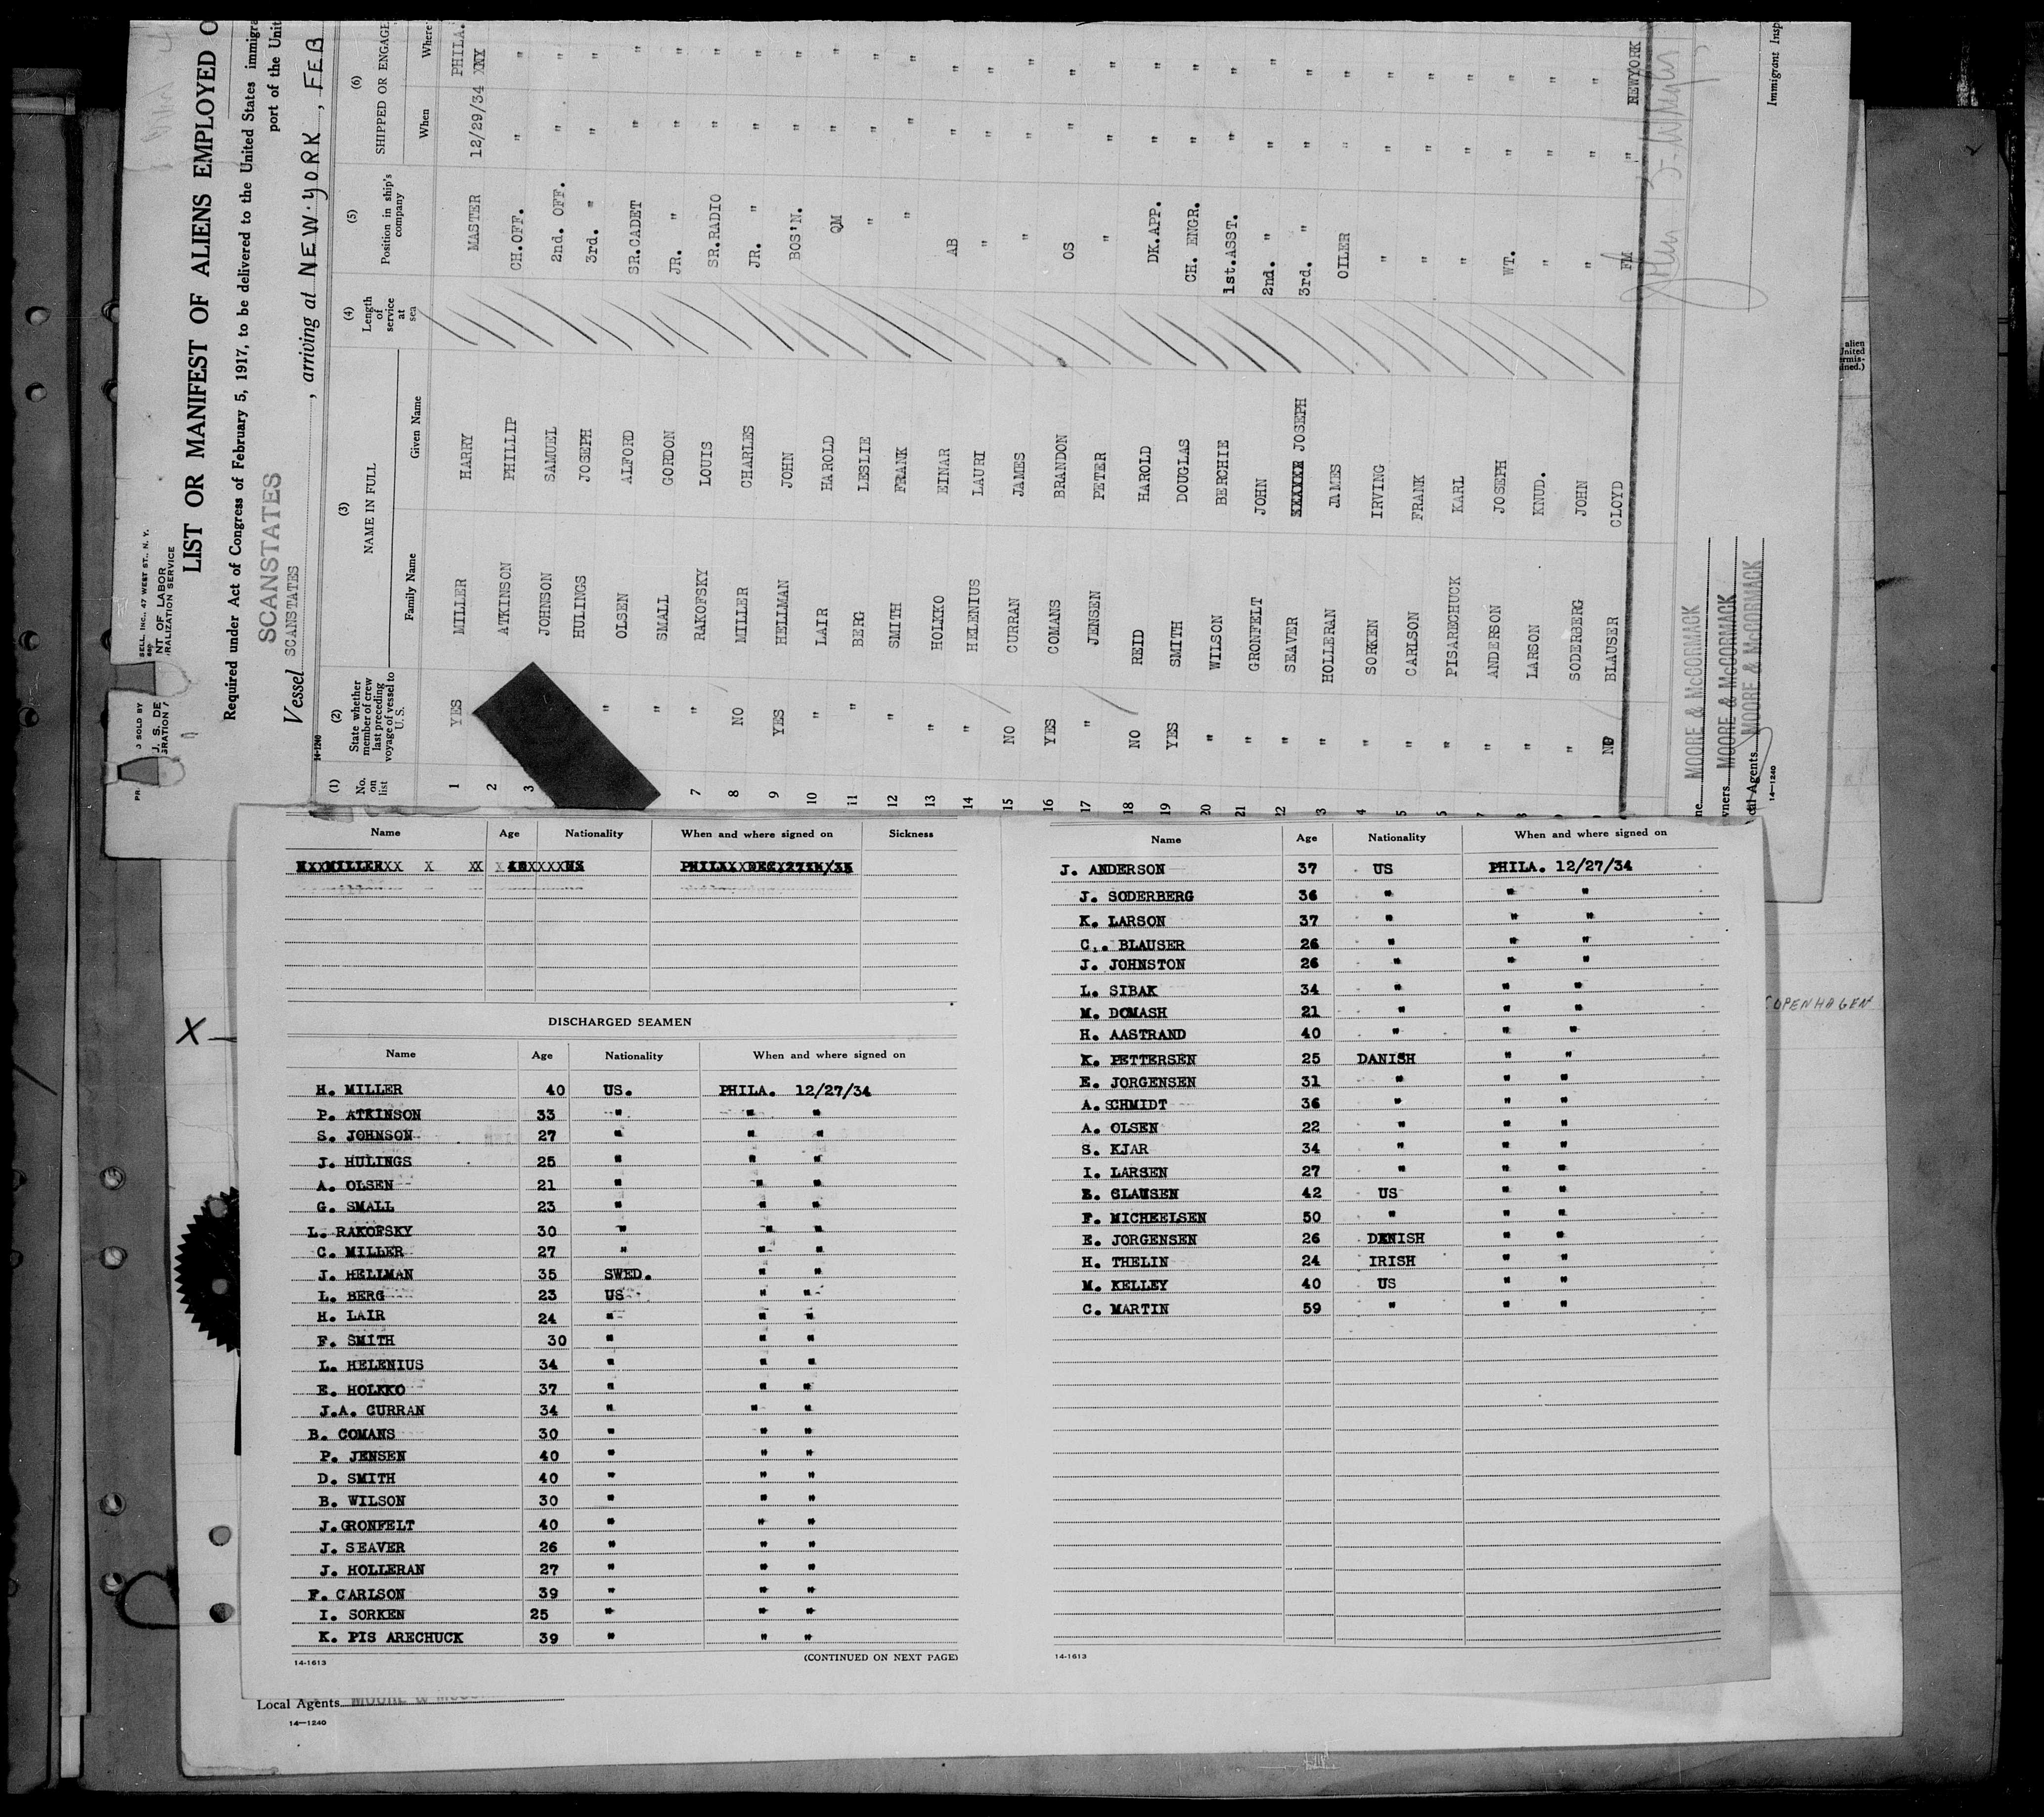 SELL, INC., 47 WEST ST., N. Y.
NT OF LABOR
RALIZATION SERVICE
SOLD BY
J. S. DE
LIST OR MANIFEST OF ALIENS EMPLOYED O
Required under Act of Congress of February 5, 1917, to be delivered to the United States immigra
port of the Unit
SCANSTATES
Vessel SCANSTATES, arriving at NEW YORK, FEB
14-1240
(1) No. on list (2) State whether member of crew last preceding voyage of vessel to U. S. (3) NAME IN FULL Family Name Given Name (4) Length of service at sea (5) Position in ship's company (6) SHIPPED OR ENGAGE When Where
1 YES MILLER HARRY MASTER 12/29/34 PHILA. NY
2 ATKINSON PHILLIP CH.OFF. " "
3 JOHNSON SAMUEL 2nd. OFF. " "
HULINGS JOSEPH 3rd. " " "
" OLSEN ALFORD SR.CADET " "
" SMALL GORDON JR. " " "
7 " RAKOFSKY LOUIS SR.RADIO " "
8 NO MILLER CHARLES JR. " " "
9 YES HELLMAN JOHN BOS'N. " "
10 " LAIR HAROLD QM " "
11 " BERG LESLIE " " "
12 " SMITH FRANK " " "
13 " HOLKKO EINAR AB " "
14 " HELENIUS LAURI " " "
15 NO CURRAN JAMES " " "
16 YES COMANS BRANDON OS " "
17 " JENSEN PETER " " "
18 NO REID HAROLD DK.APP. " "
19 YES SMITH DOUGLAS CH. ENGR. " "
20 " WILSON BERCHIE 1st.ASST. " "
21 " GRONFELT JOHN 2nd. " " "
22 " SEAVER JOSEPH 3rd. " " "
3 " HOLLERAN JAMES OILER " "
4 " SORKEN IRVING " " "
5 " CARLSON FRANK " " "
" PISARECHUCK KARL " " "
7 " ANDERSON JOSEPH WT. " "
8 " LARSON KNUD. " " "
" SODERBERG JOHN " " "
NO BLAUSER CLOYD FM " NEWYORK
Immigrant Insp
MOORE & McCORMACK
wners MOORE & McCORMACK
cal Agents MOORE & McCORMACK
14-1240
alien
United
ermis-
ined.)
COPENHAGEN
X
Name Age Nationality When and where signed on Sickness
MILLER 40 US PHILA DEC
DISCHARGED SEAMEN
Name Age Nationality When and where signed on
H. MILLER 40 US. PHILA. 12/27/34
P. ATKINSON 33 " " "
S. JOHNSON 27 " " "
J. HULINGS 25 " " "
A. OLSEN 21 " " "
G. SMALL 23 " " "
L. RAKOFSKY 30 " " "
C. MILLER 27 " " "
J. HELLMAN 35 SWED. " "
L. BERG 23 US " "
H. LAIR 24 " " "
F. SMITH 30 " " "
L. HELENIUS 34 " " "
E. HOLKKO 37 " " "
J.A. CURRAN 34 " " "
B. COMANS 30 " " "
P. JENSEN 40 " " "
D. SMITH 40 " " "
B. WILSON 30 " " "
J.GRONFELT 40 " " "
J. SEAVER 26 " " "
J. HOLLERAN 27 " " "
F. CARLSON 39 " " "
I. SORKEN 25 " " "
K. PIS ARECHUCK 39 " " "
14-1613 (CONTINUED ON NEXT PAGE)
Name Age Nationality When and where signed on
J. ANDERSON 37 US PHILA. 12/27/34
J. SODERBERG 36 " " "
K. LARSON 37 " " "
C,. BLAUSER 26 " " "
J. JOHNSTON 26 " " "
L. SIBAK 34 " " "
M. DOMASH 21 " " "
H. AASTRAND 40 " " "
K. PETTERSEN 25 DANISH " "
E. JORGENSEN 31 " " "
A. SCHMIDT 36 " " "
A. OLSEN 22 " " "
S. KJAR 34 " " "
I. LARSEN 27 " " "
E. CLAUSEN 42 US " "
F. MICHEELSEN 50 " " "
E. JORGENSEN 26 DENISH " "
H. THELIN 24 IRISH " "
M. KELLEY 40 US " "
C. MARTIN 59 " " "
14-1613
Local Agents
14-1240